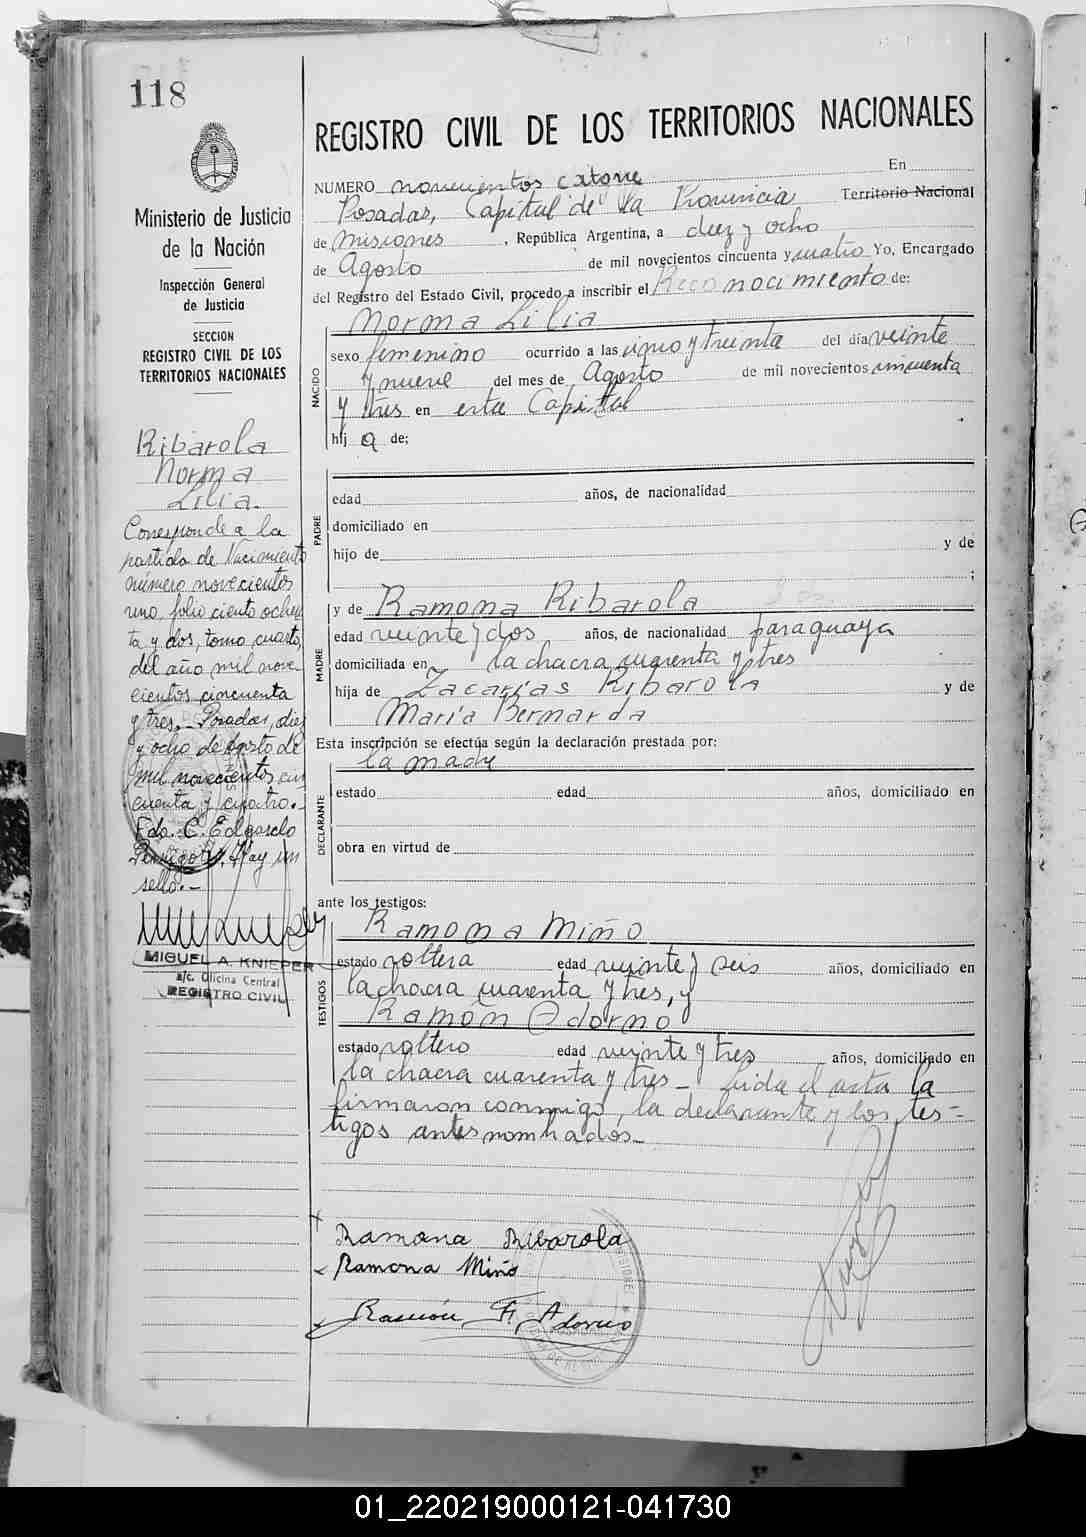 118
Ministerio de Justicia
de la Nación
Inspección General
de Justicia
SECCION
REGISTRO CIVIL DE LOS
TERRITORIOS NACIONALES
Ribarola
Norma
Lilia.
Corresponde a la
partida de Nacimiento
número novecientos
uno, folio ciento ochen
ta y dos, tomo cuarto,
del año mil nove
cientos cincuenta
y tres.- Posadas, diez
y ocho de Agosto de
mil novecientos cin
cuenta y cuatro.-
Fdo. C. Edgardo
Hay un
sello.-
MIGUEL A. KNIEPER
a/c. Oficina Central
REGISTRO CIVIL
REGISTRO CIVIL DE LOS TERRITORIOS NACIONALES
NUMERO novecientos catorce En
Posadas, Capital de la Provincia Territorio Nacional
de Misiones, República Argentina, a diez y ocho
de Agosto de mil novecientos cincuenta y cuatro Yo, Encargado
del Registro del Estado Civil, procedo a inscribir el Reconocimiento de:
NACIDO
Norma Lilia
sexo femenino ocurrido a las cinco y treinta del día veinte
y nueve del mes de Agosto de mil novecientos cincuenta
y tres en esta Capital
hij a de;
PADRE
edad años, de nacionalidad
domiciliado en
hijo de y de
;
MADRE
y de Ramona Ribarola
edad veinte y dos años, de nacionalidad paraguaya
domiciliada en la chacra cuarenta y tres
hija de Zacarías Ribarola y de
María Bernarda
Esta inscripción se efectúa según la declaración prestada por:
DECLARANTE
la madre
estado edad años, domiciliado en
obra en virtud de
ante los testigos:
TESTIGOS
Ramona Miño
estado soltera edad veinte y seis años, domiciliado en
la chacra cuarenta y tres, y
Ramón Adorno
estado soltero edad veinte y tres años, domiciliado en
la chacra cuarenta y tres - Leida el acta la
firmaron conmigo, la declarante y los tes=
tigos antes nombrados-
Ramona Ribarola
Ramona Miño
Ramón F. Adorno
01_220219000121-041730